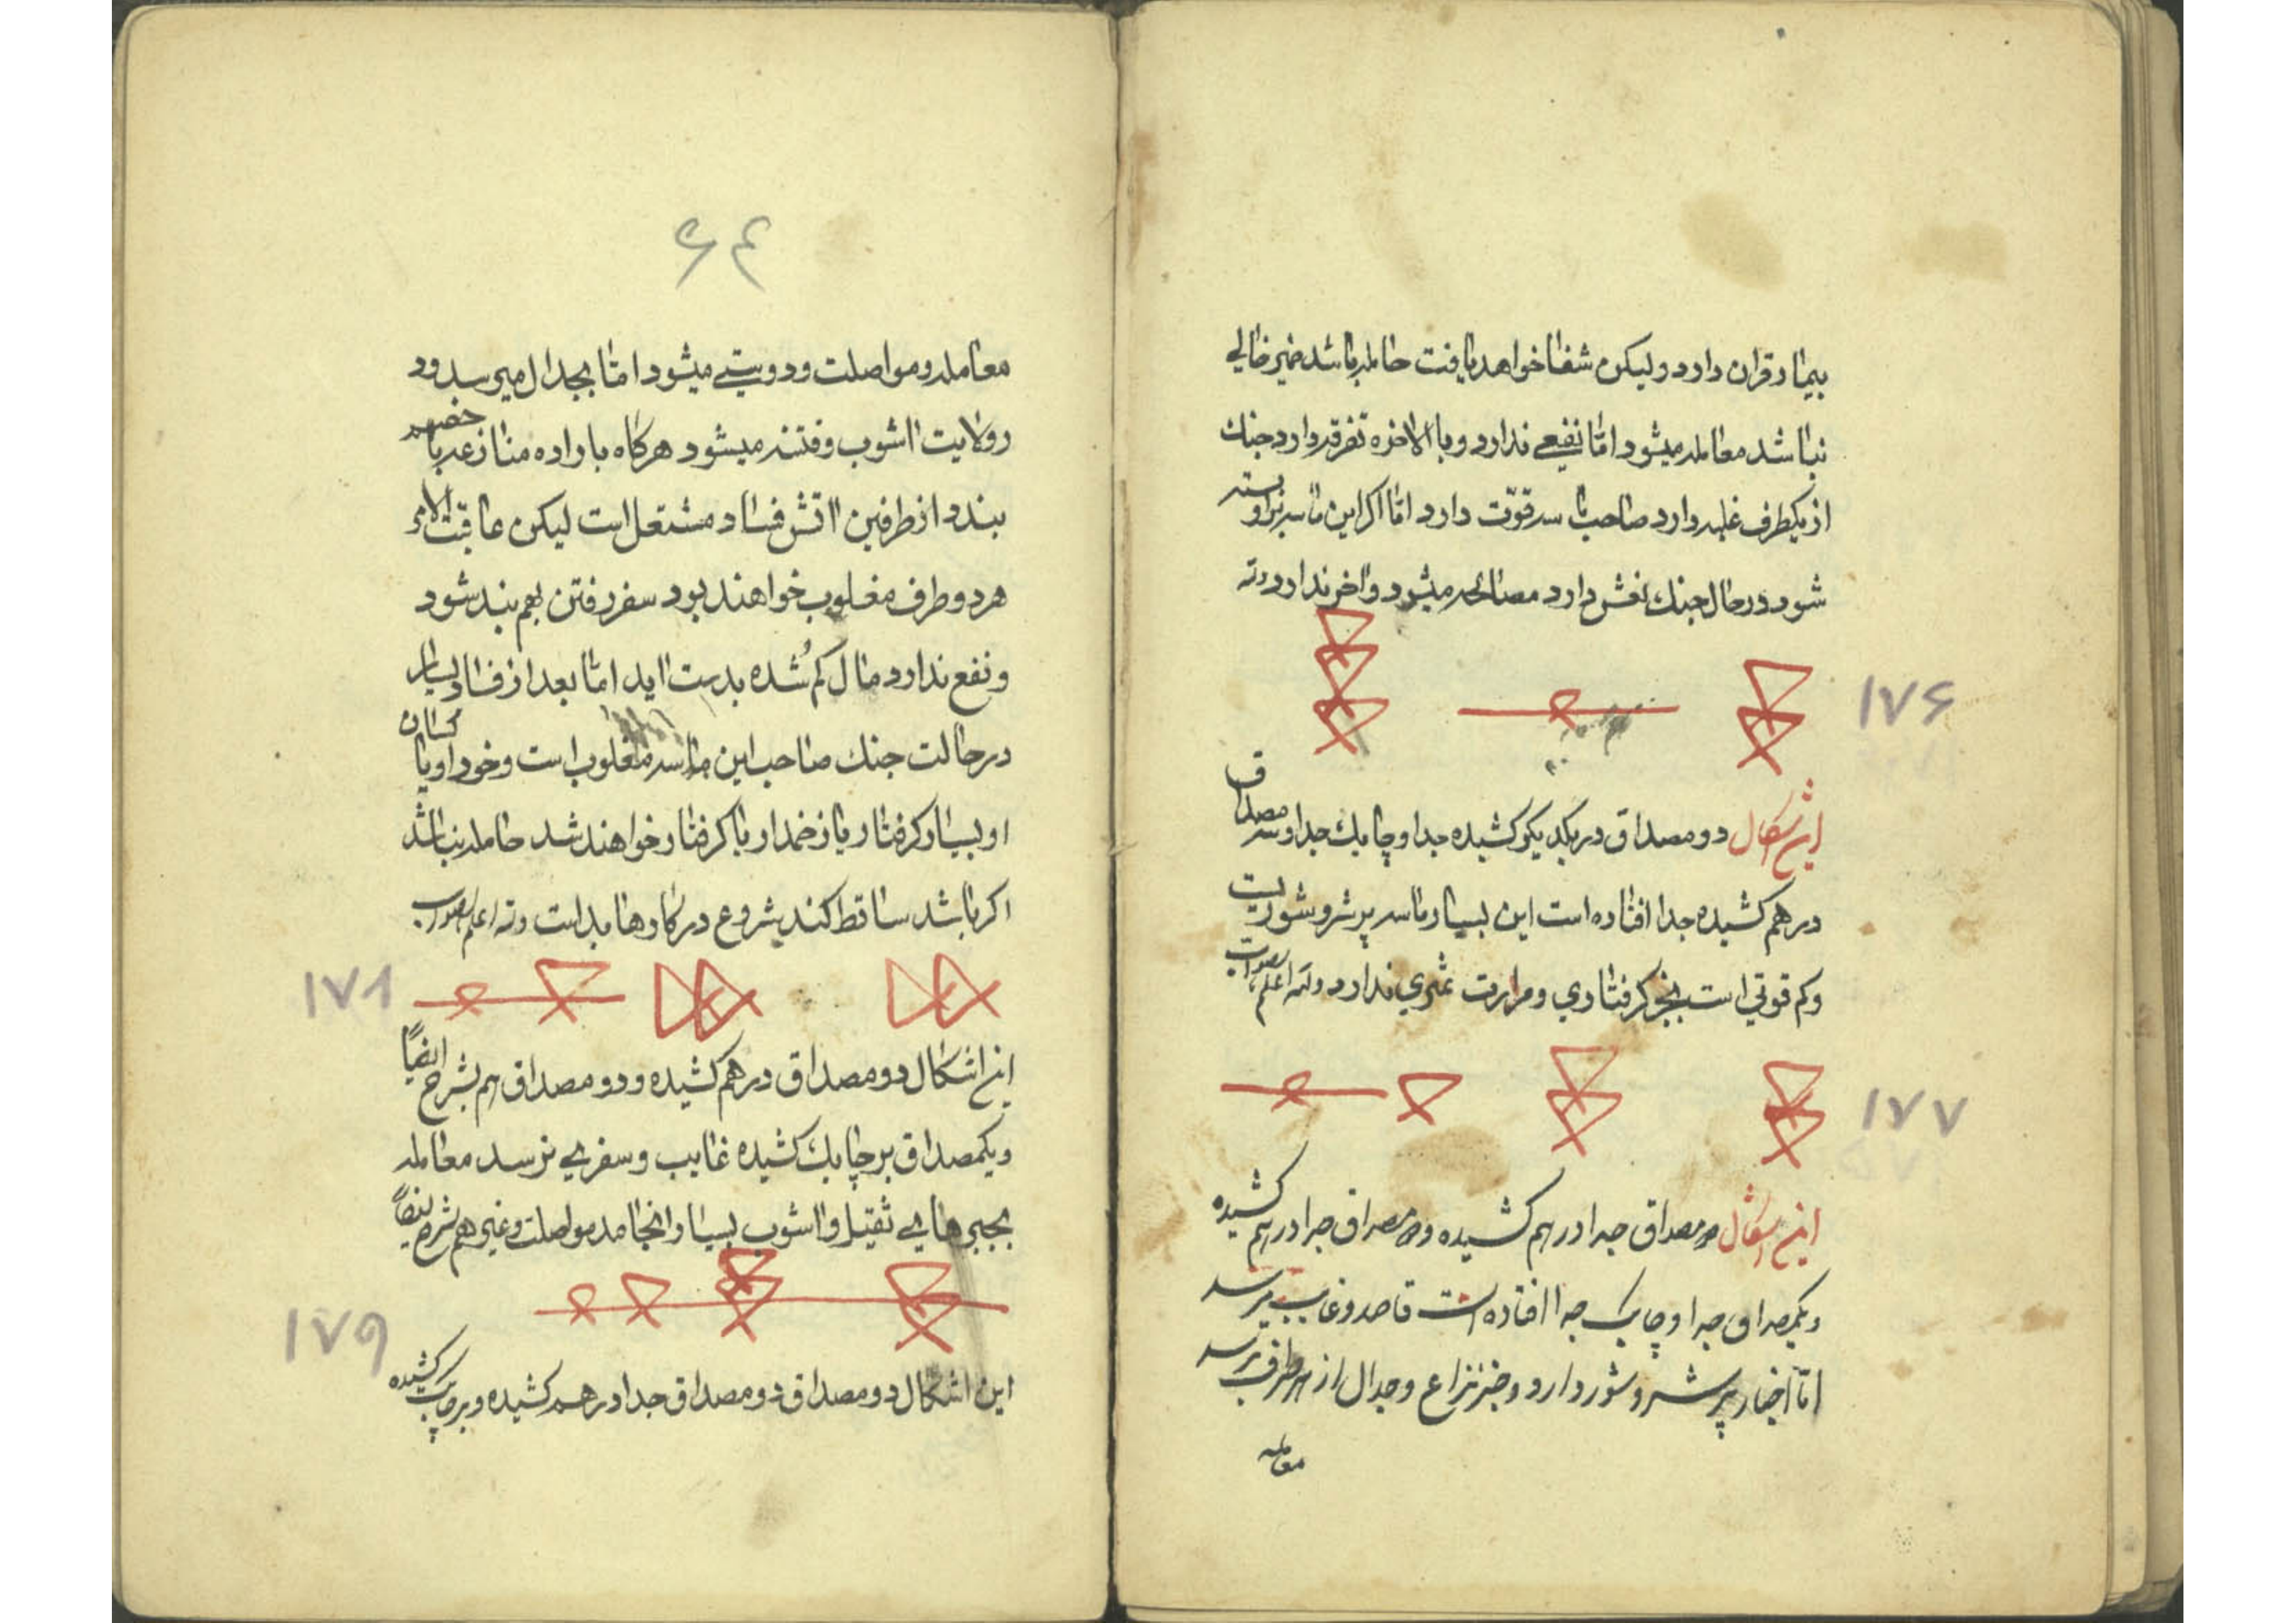 بیمار قران دارد ولیکن شفا خواهد یافت حامله باشد ضمیر خالی
نباشد معامله میشود امّا نفعی ندارد و بالاخره تفرقه دارد جنك
از یکطرف غلبه دارد صاحب تاسه قوّت دارد امّا اکر این تاسه
شود در حال جنك نقش دارد مصالحه میشود و اخر ندارد
۱۷۶
این اشکال دو مصداق در یکدیکر کشیده جدا و چابك جدا و سه مصداق
در هم کشیده جدا افتاده است این بسیار تاسه پر شر و شوریست
و کم قوتی است بجز کرفتاری و مرارت ثمری ندارد والله اعلم بالصواب
۱۷۷
این اشکال دو مصداق جدا در هم کشیده و دو مصداق جدا در هم کشیده
و یکمصداق جدا و چابک جدا افتاده است قاصد و غایب میرسد
امّا اخبار پر شر و شور دارد و خبر نزاع و جدال از هر طرف میرسد
معامله
۶۴
معامله و مواصلت و دوستی میشود امّا بجدال میرسد و د
ر ولایت اشوب و فتنه میشود هرکاه باراده منازعه با خصم
بندد از طرفین اتش فساد مشتعل است لیکن عاقبت الامر
هر دو طرف مغلوب خواهند بود سفر رفتن هم بند شود
و نفع ندارد مال کم شده بدست اید امّا بعد از فساد بسیار
در حالت جنك صاحب این تاسه مغلوب است و خود او یا کسان
او بسیار کرفتار یا زخمدار یا کرفتار خواهند شد حامله نباشد
اکر باشد ساقط کند شروع در کارها بد است والله اعلم بالصواب
۱۷۸
این اشکال دو مصداق در هم کشیده و دو مصداق هم بشرح ایضاً
و یکمصداق بر چابك کشیده غایب و سفری نرسد معامله
بجبرهایی ثقیل و اشوب بسیار انجامد مواصلت و غیره هم بشرح ایضاً
۱۷۹
این اشکال دو مصداق دو مصداق جدا در هم کشیده و بر چابك کشیده